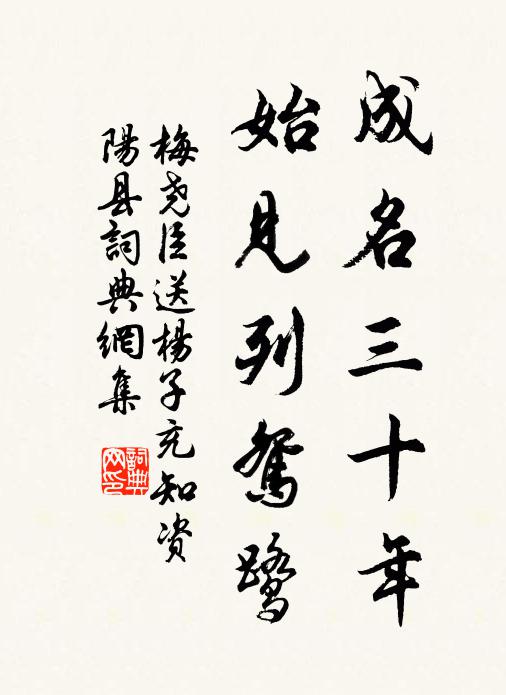 成名三十年
始見列駕鷺
梅尧臣送楊子充知资
陽县詞典網集
詞典
网印